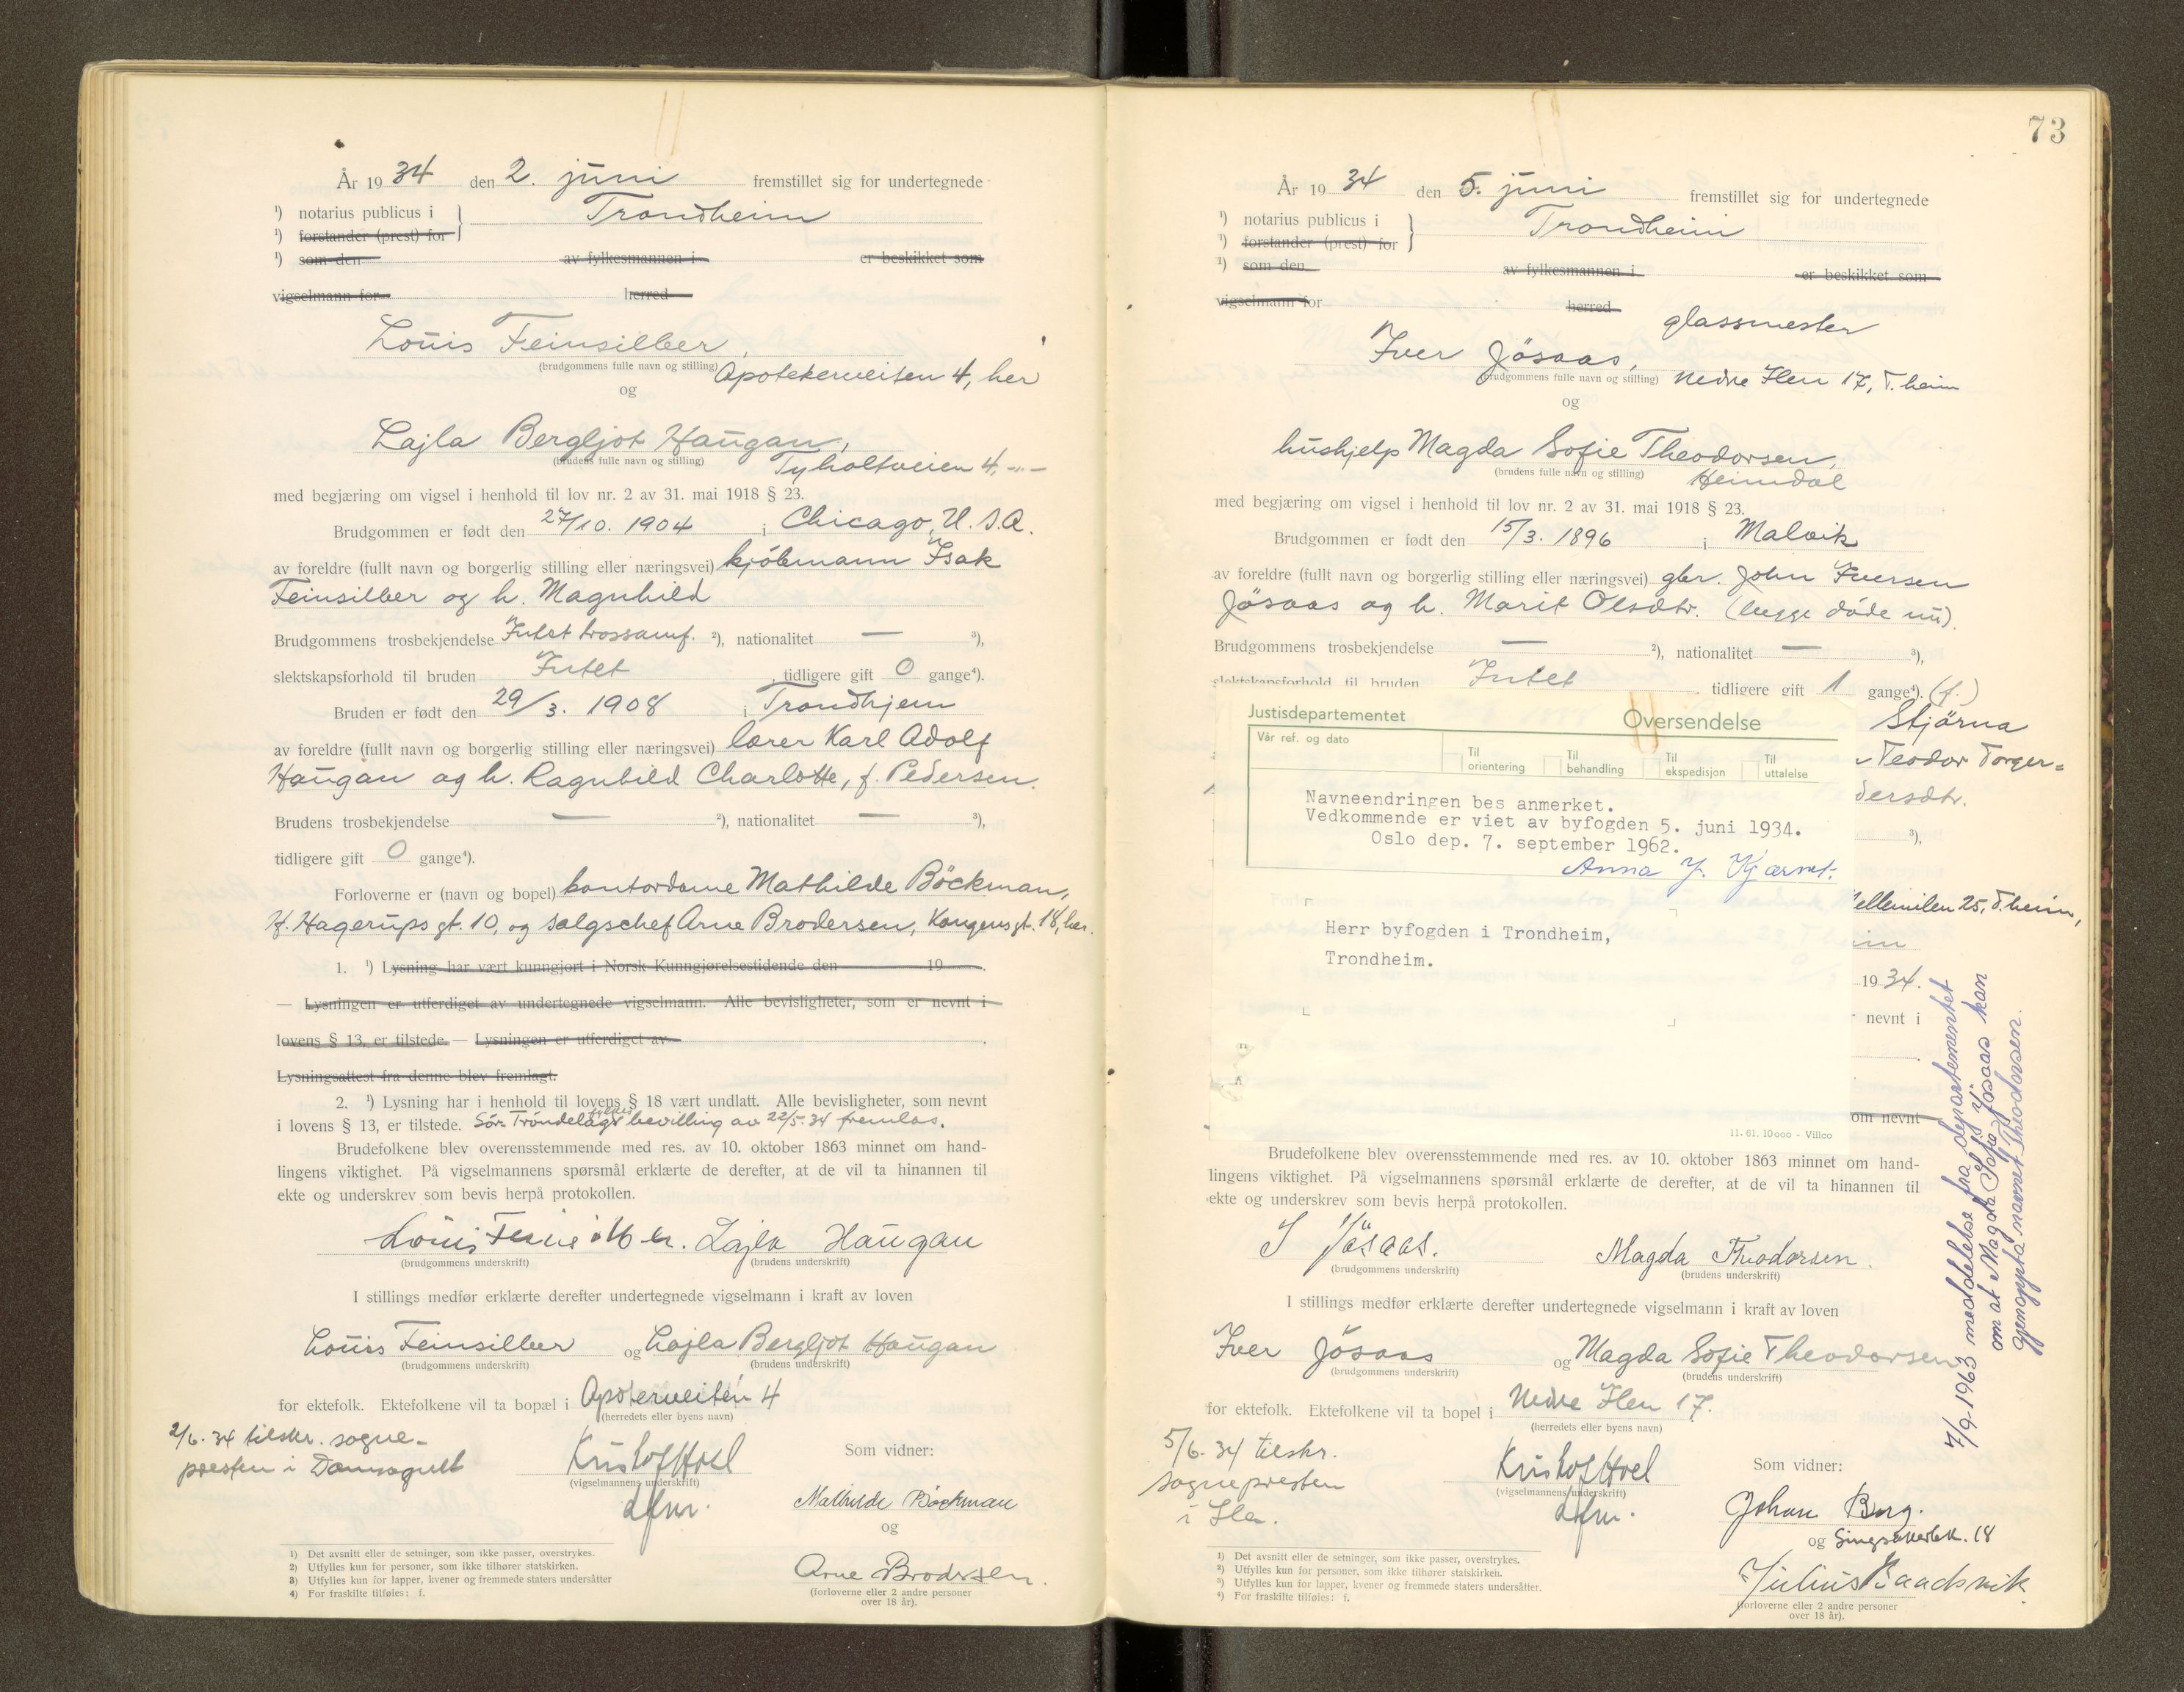 År 1934 den 2. juni fremstillet sig for undertegnede
¹) notarius publicus i Trondheim
¹) forstander (prest) for
¹) som den av fylkesmannen i er beskikket som
vigselmann for herred
Louis Feinsilber,
(brudgommens fulle navn og stilling) Apotekerveiten 4, her
og
Lajla Bergljot Haugan,
(brudens fulle navn og stilling) Tyholtveien 4. -"-
med begjæring om vigsel i henhold til lov nr. 2 av 31. mai 1918 § 23.
Brudgommen er født den 27/10. 1904 i Chicago, U.S.A.
av foreldre (fullt navn og borgerlig stilling eller næringsvei) kjöbmann Isak
Feinsilber og h. Magnhild
Brudgommens trosbekjendelse Intet trossamf. ²), nationalitet — ³),
slektskapsforhold til bruden Intet, tidligere gift 0 gange⁴).
Bruden er født den 29/3. 1908 i Trondhjem
av foreldre (fullt navn og borgerlig stilling eller næringsvei) lærer Karl Adolf
Haugan og h. Ragnhild Charlotte, f. Pedersen.
Brudens trosbekjendelse — ²), nationalitet — ³),
tidligere gift 0 gange⁴).
Forloverne er (navn og bopel) kontordame Mathilde Böckman,
F. Hagerups gt. 10, og salgschef Arne Brodersen, Kongensgt. 18, her.
1. ¹) Lysning har vært kunngjort i Norsk Kunngjørelsestidende den 19 .
— Lysningen er utferdiget av undertegnede vigselmann. Alle bevisligheter, som er nevnt i
lovens § 13, er tilstede. — Lysningen er utferdiget av .
Lysningsattest fra denne blev fremlagt.
2. ¹) Lysning har i henhold til lovens § 18 vært undlatt. Alle bevisligheter, som nevnt
i lovens § 13, er tilstede. Sör-Tröndelag fylkes bevilling av 22/5-34 fremlas.
Brudefolkene blev overensstemmende med res. av 10. oktober 1863 minnet om hand-
lingens viktighet. På vigselmannens spørsmål erklærte de derefter, at de vil ta hinannen til
ekte og underskrev som bevis herpå protokollen.
Louis Feinsilber. Lajla Haugan
(brudgommens underskrift) (brudens underskrift)
I stillings medfør erklærte derefter undertegnede vigselmann i kraft av loven
Louis Feinsilber og Lajla Bergljot Haugan
(brudgommens underskrift) (brudens underskrift)
for ektefolk. Ektefolkene vil ta bopæl i Apoterveiten 4
(herredets eller byens navn)
2/6. 34 tilskr. sogne-
presten i Domsognet
Kristof Hoel
(vigselmannens underskrift)
dfm.
Som vidner:
Mathilde Böckman
og
Arne Brodersen.
(forloverne eller 2 andre personer
over 18 år).
1) Det avsnitt eller de setninger, som ikke passer, overstrykes.
2) Utfylles kun for personer, som ikke tilhører statskirken.
3) Utfylles kun for lapper, kvener og fremmede staters undersåtter
4) For fraskilte tilføies: f.
73
År 1934 den 5. juni fremstillet sig for undertegnede
¹) notarius publicus i Trondheim
¹) forstander (prest) for
¹) som den av fylkesmannen i er beskikket som
vigselmann for herred
glassmester
Iver Jösaas,
(brudgommens fulle navn og stilling) Nedre Ilen 17, T.heim
og
hushjelp Magda Sofie Theodorsen,
(brudens fulle navn og stilling) Heimdal
med begjæring om vigsel i henhold til lov nr. 2 av 31. mai 1918 § 23.
Brudgommen er født den 15/3. 1896 i Malvik
av foreldre (fullt navn og borgerlig stilling eller næringsvei) gbr. John Iversen
Jösaas og h. Marit Olsdtr. (begge döde nu).
Brudgommens trosbekjendelse — ²), nationalitet — ³),
slektskapsforhold til bruden Intet, tidligere gift 1 gange⁴). (f.)
Stjörna
Teodor Torger-
dersdtr.
³),
Mellemilen 25, T.heim,
eim
1934.
nevnt i
om nevnt
Justisdepartementet
Oversendelse
Vår ref. og dato
Til orientering
Til behandling
Til ekspedisjon
Til uttalelse
Navneendringen bes anmerket.
Vedkommende er viet av byfogden 5. juni 1934.
Oslo dep. 7. september 1962.
Herr byfogden i Trondheim,
Trondheim.
11. 61. 10000 - Villco
Brudefolkene blev overensstemmende med res. av 10. oktober 1863 minnet om hand-
lingens viktighet. På vigselmannens spørsmål erklærte de derefter, at de vil ta hinannen til
ekte og underskrev som bevis herpå protokollen.
I Jösaas. Magda Theodorsen.
(brudgommens underskrift) (brudens underskrift)
I stillings medfør erklærte derefter undertegnede vigselmann i kraft av loven
Iver Jösaas og Magda Sofie Theodorsen
(brudgommens underskrift) (brudens underskrift)
for ektefolk. Ektefolkene vil ta bopel i Nedre Ilen 17.
(herredets eller byens navn)
5/6. 34 tilskr.
sognepresten
i Ilen.
Kristof Hoel
(vigselmannens underskrift)
dfm.
Som vidner:
Johan Borg.
og Singsakerbk. 18
Julius Saadvik.
(forloverne eller 2 andre personer
over 18 år).
1) Det avsnitt eller de setninger, som ikke passer, overstrykes.
2) Utfylles kun for personer, som ikke tilhører statskirken.
3) Utfylles kun for lapper, kvener og fremmede staters undersåtter.
4) For fraskilte tilføies: f.
7/9-1963 meddelelse fra departementet
om at Magda Sofie Jösaas kan
gjenoppta navnet Theodorsen.